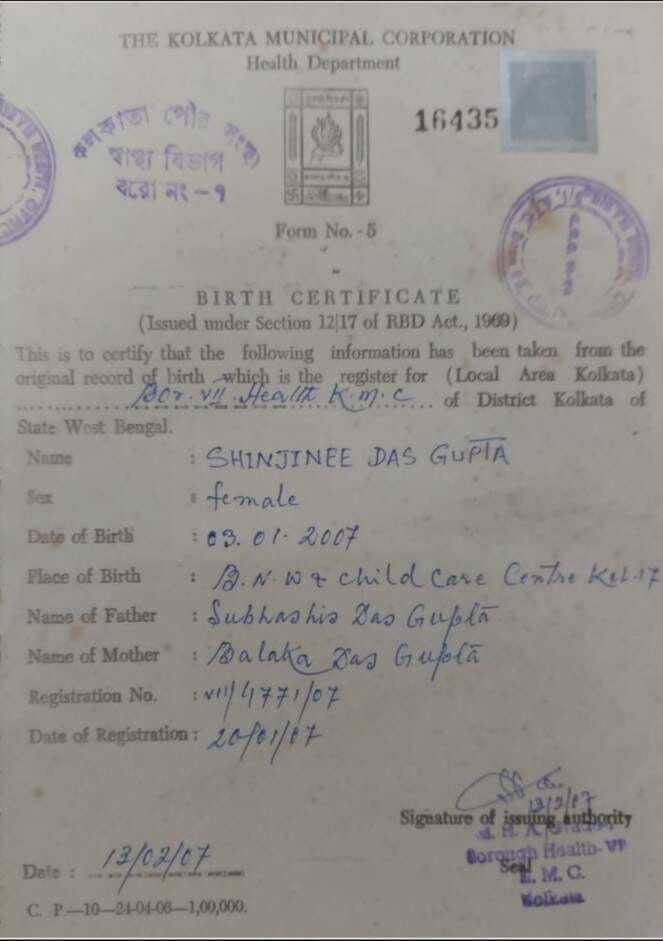 THE KOLKATA MUNICIPAL CORPORATION
Health Department
16435
কলকাতা পৌর সংস্থা
স্বাস্থ্য বিভাগ
বরো নং - ৭
Form No. - 5
BIRTH CERTIFICATE
(Issued under Section 12|17 of RBD Act., 1969)
This is to certify that the following information has been taken from the
original record of birth which is the register for (Local Area Kolkata)
Bor. VII. Health K.M.C. of District Kolkata of
State West Bengal.
Name : SHINJINEE DAS GUPTA
Sex : female
Date of Birth : 03.01.2007
Place of Birth : B.N.W & child Care Centre Kol-17
Name of Father : Subhashis Das Gupta
Name of Mother : Balaka Das Gupta
Registration No. : VII/4771/07
Date of Registration : 20/01/07
13/2/07
Signature of issuing authority
Borough Health-VII
Seal
K. M. C.
Kolkata
Date : 13/02/07
C. P.—10—24-04-06—1,00,000.